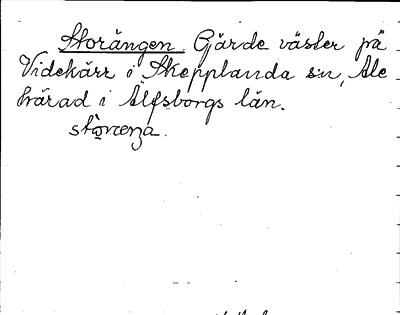 Storängen. Gärde väster på
Videkärr i Skepplanda sn, Ale
härad i Älfsborgs län.